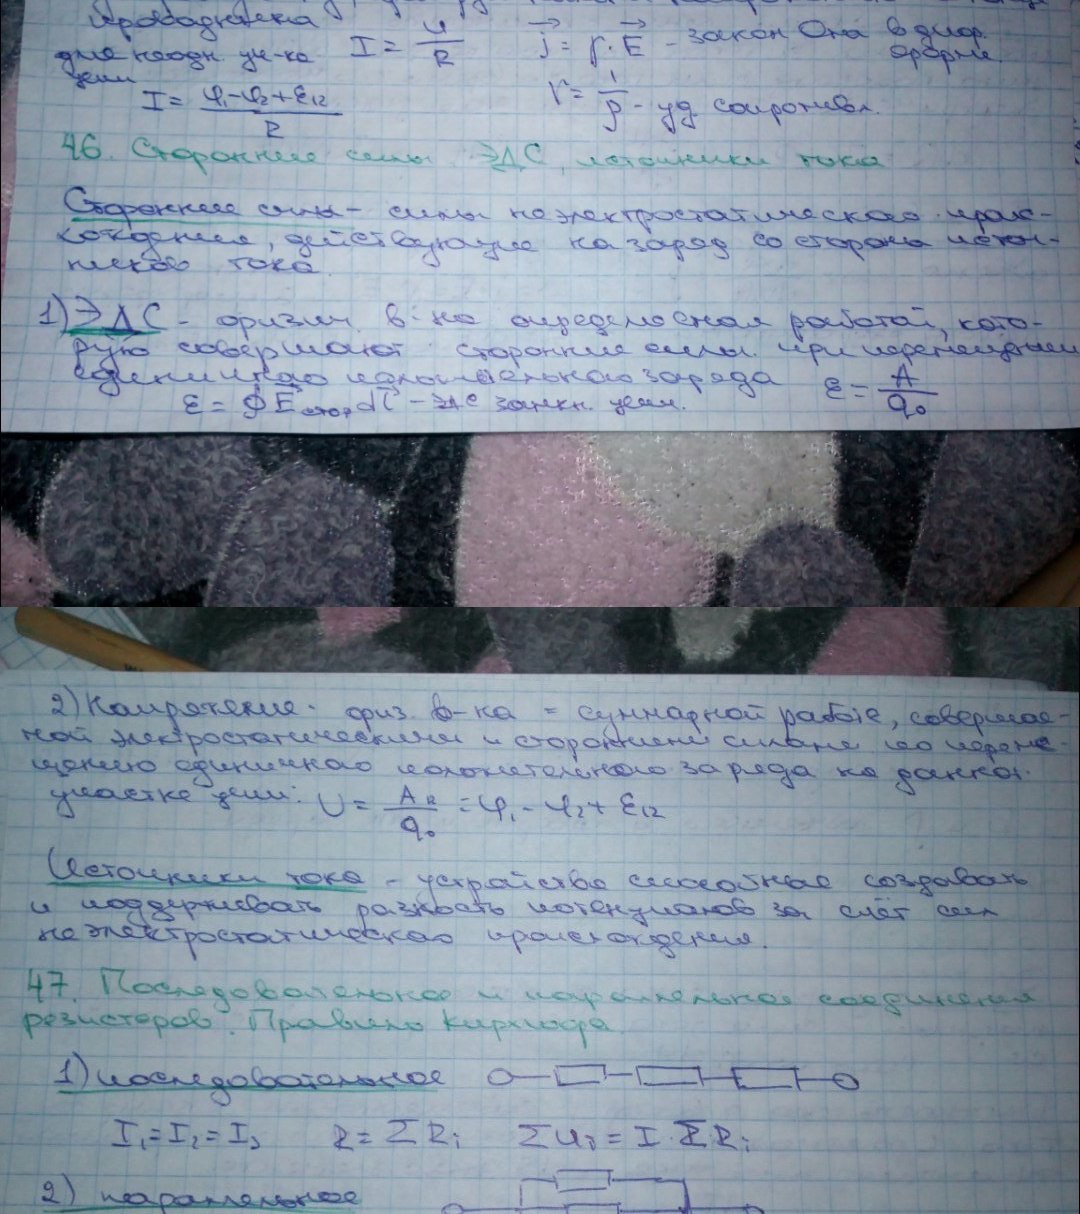 проводника
для неодн. уч-ка
цепи
I = U/R
j⃗ = γ · E⃗ - закон Ома в диф. форме.
I = φ₁-φ₂+ε₁₂ / R
γ = 1/ρ - уд. сопротивл.
46. Сторонние силы. ЭДС, источники тока
Сторонние силы - силы неэлектростатического проис-
хождения, действующие на заряд со стороны источ-
ников тока.
1) ЭДС - физич. в-на определяемая работой, кото-
рую совершают сторонние силы при перемещении
единичного положительного заряда ε = A/q₀
ε = ∮E⃗стор dl⃗ - ЭДС замкн. цепи.
2) Напряжение - физ. в-на = суммарной работе, совершае-
мой электростатическими и сторонними силами по переме-
щению единичного положительного заряда на данном
участке цепи: U = A₁₂/q₀ = φ₁ - φ₂ + ε₁₂
Источники тока - устройства способные создавать
и поддерживать разность потенциалов за счёт сил
неэлектростатического происхождения.
47. Последовательное и параллельное соединения
резисторов. Правило Кирхгофа
1) последовательное
I₁ = I₂ = I₃ R = ΣRᵢ ΣUᵢ = I · ΣRᵢ
2) параллельное